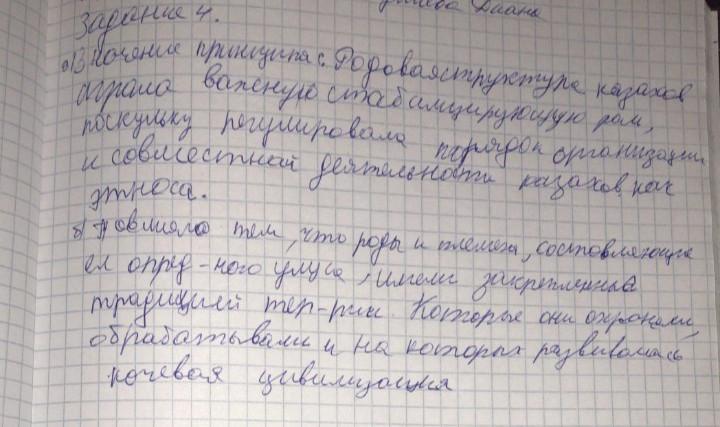 Диана
Задание 4.
а) Значение принципа: Родовая структура казахов
играла важную стабилизирующую роль,
поскольку регулировала порядок организации
и совместной деятельности казахов как
этноса.
б) Повлияло тем, что роды и племена, составляющие
ел опред-ного улуса, имели закрепленные
традицией тер-рии. Которые они охраняли,
обрабатывали и на которых развивалась
кочевая цивилизация